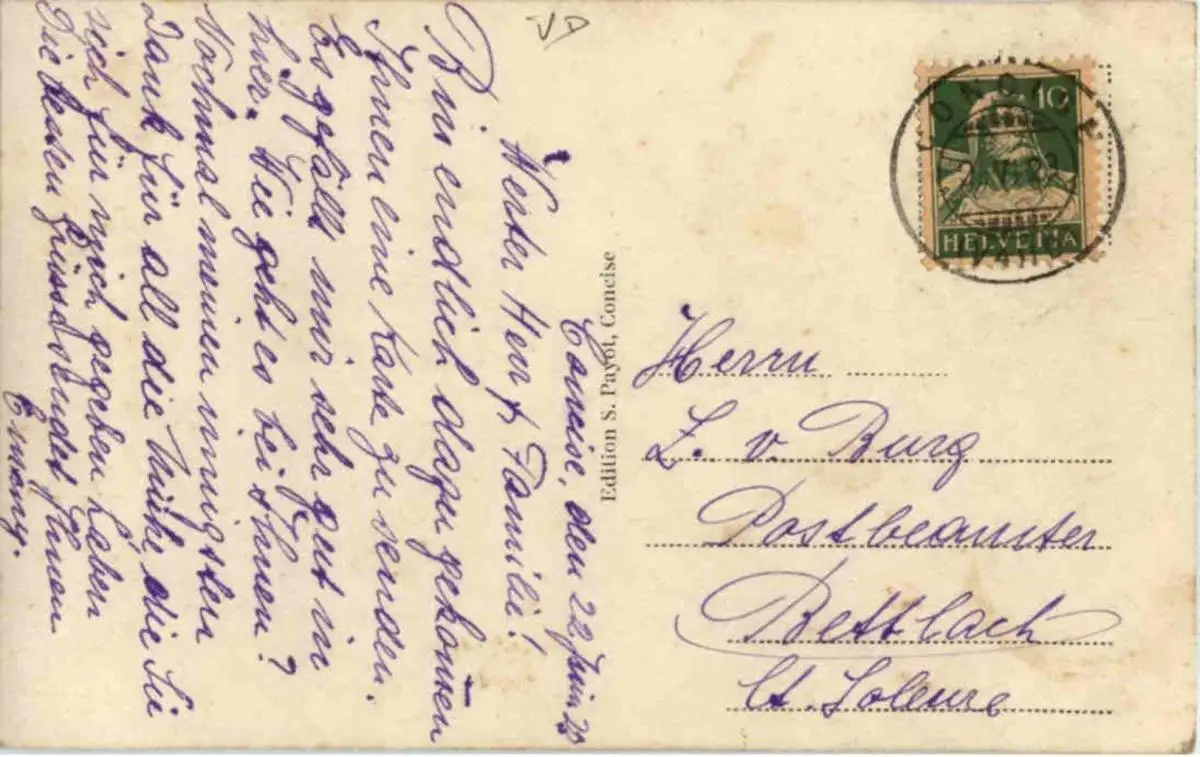 Concise, den 22. Juni 23
Werter Herr & Familie!
Bin endlich dazu gekom̄en
Ihnen eine Karte zu senden.
Es gefällt mir sehr gut in
hier. Wie geht es bei Ihnen?
Nochmal meinen innigsten
Dank für all die Mühe, die Sie
sich für mich gegeben haben
Die besten Grüsse sendet Ihnen
Emmy.
Edition S. Payot, Concise
10
HELVETIA
CONCISE
Herrn
Z. v. Burg
Postbeamter
Bettlach
Ct. Soleure